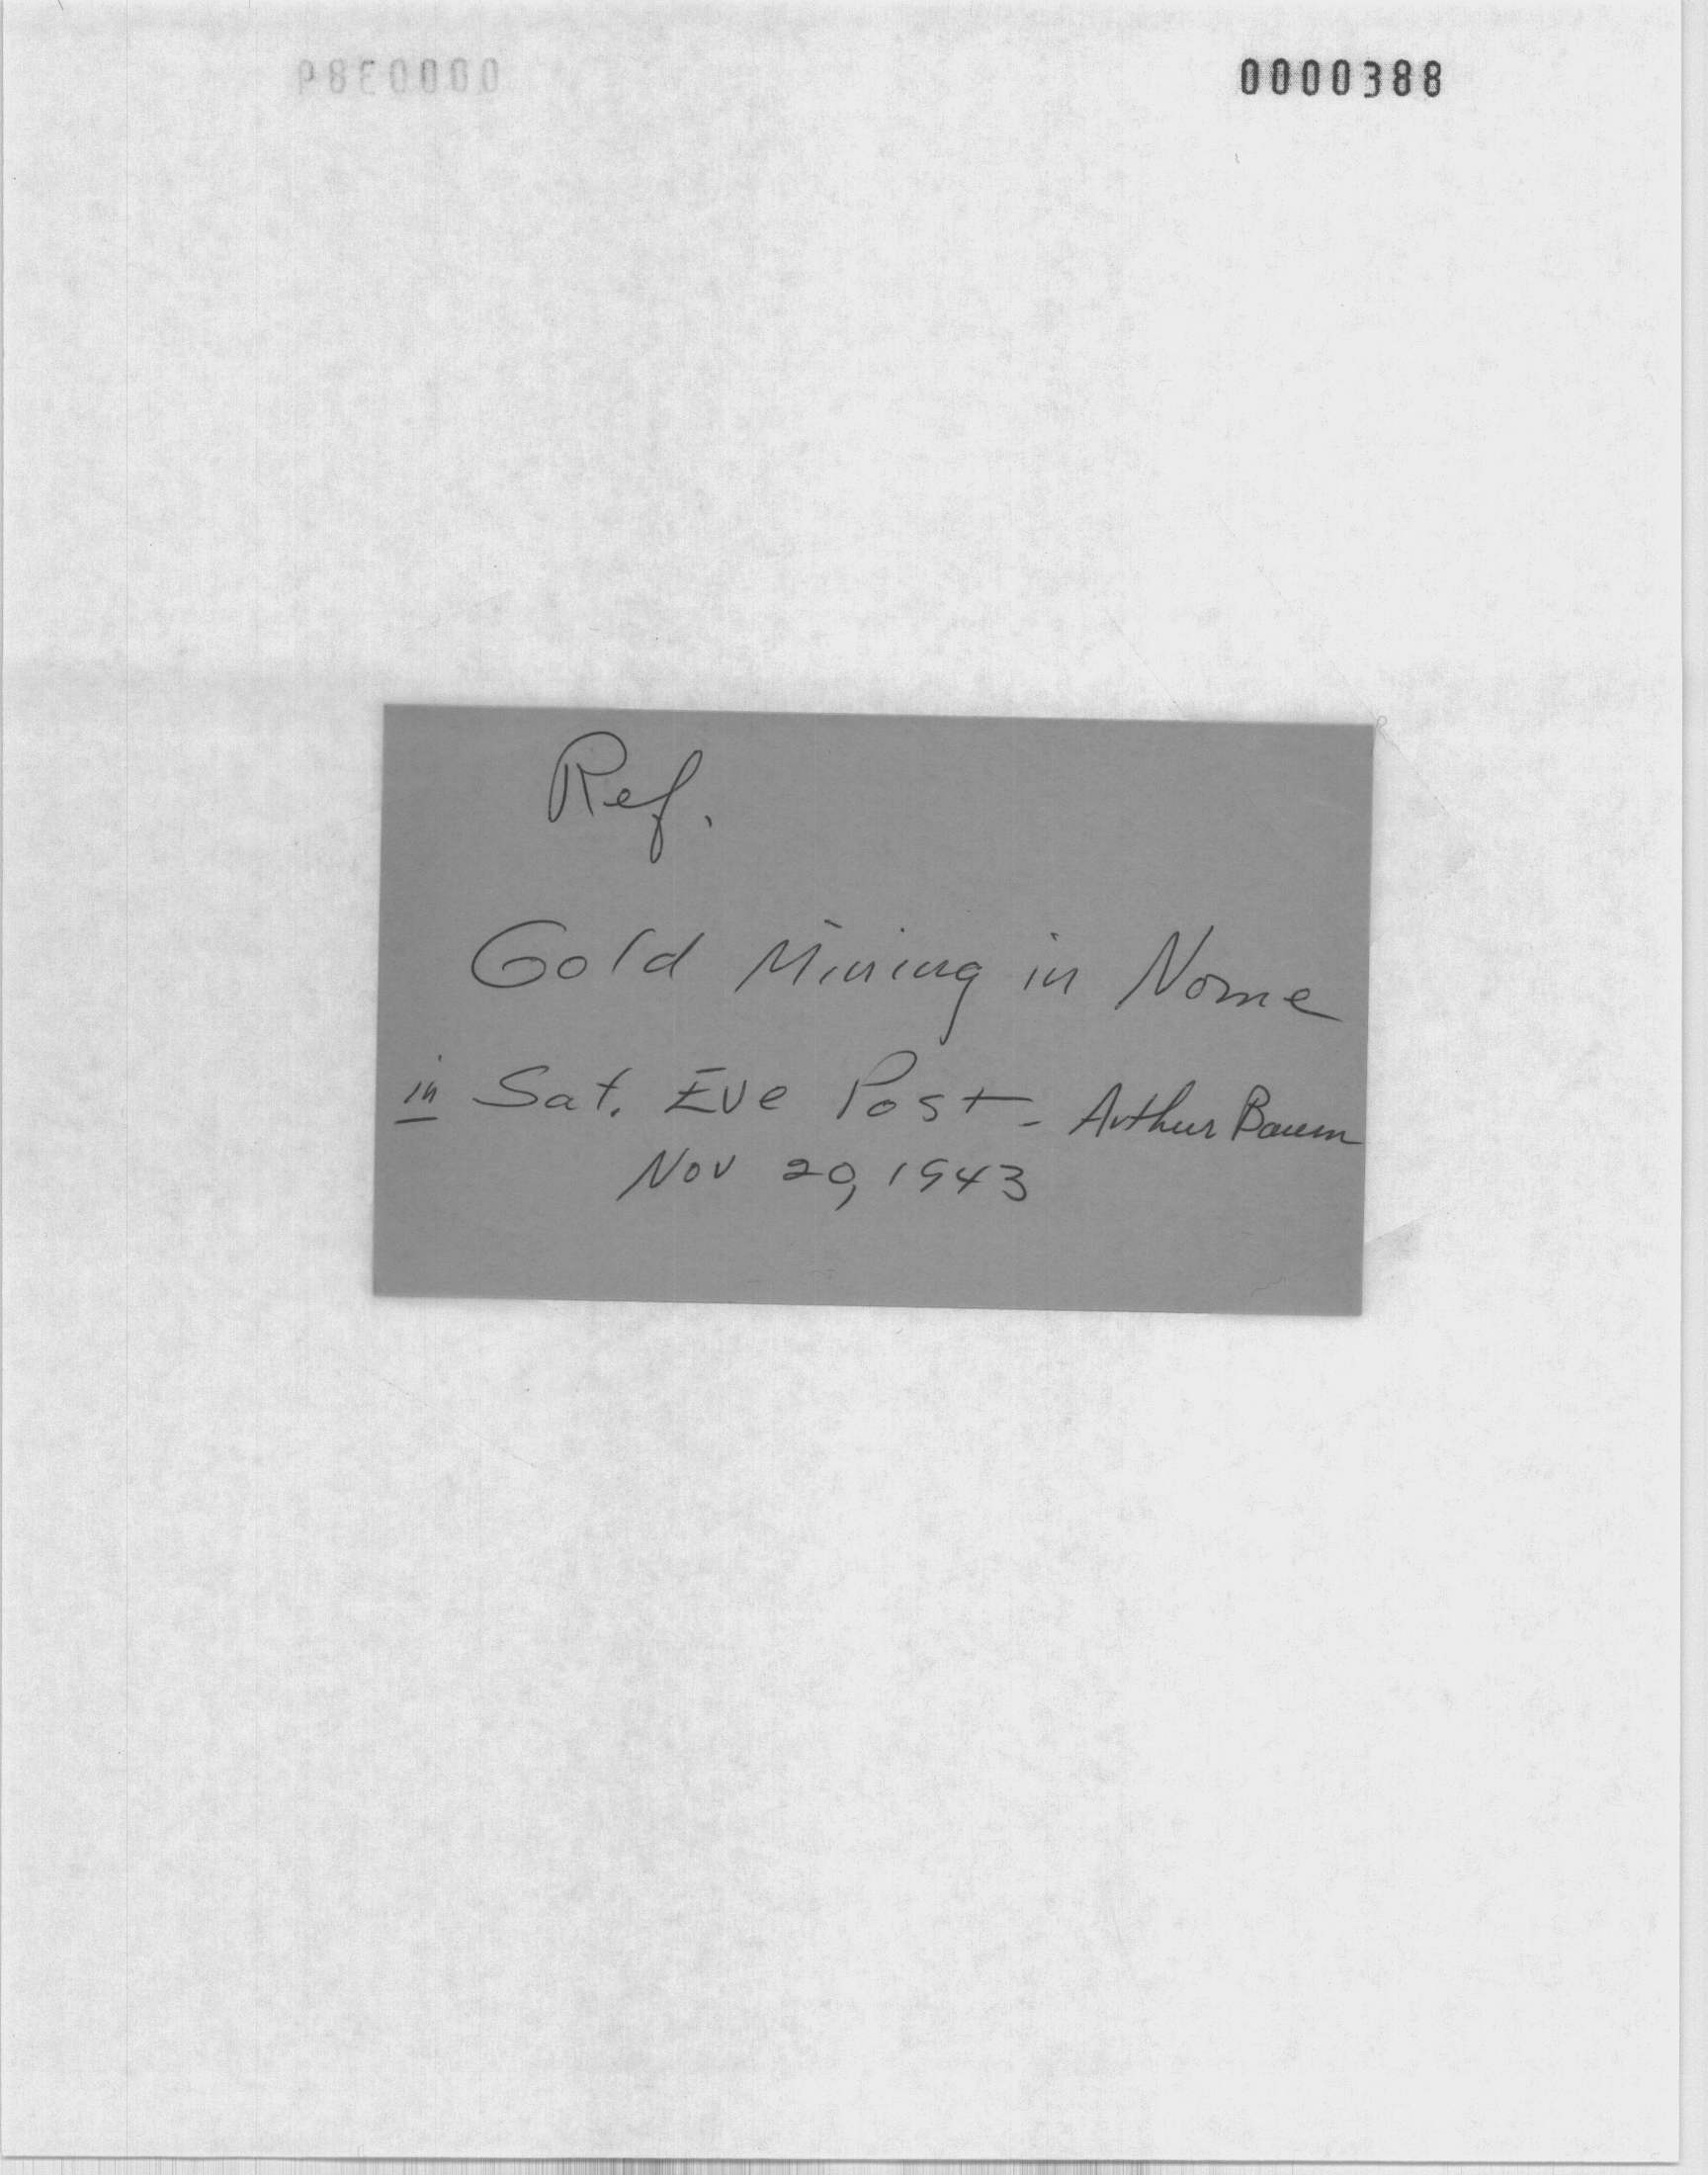 0000388
Ref.
Gold Mining in Nome
in Sat. Eve Post - Arthur Baum
Nov 20, 1943